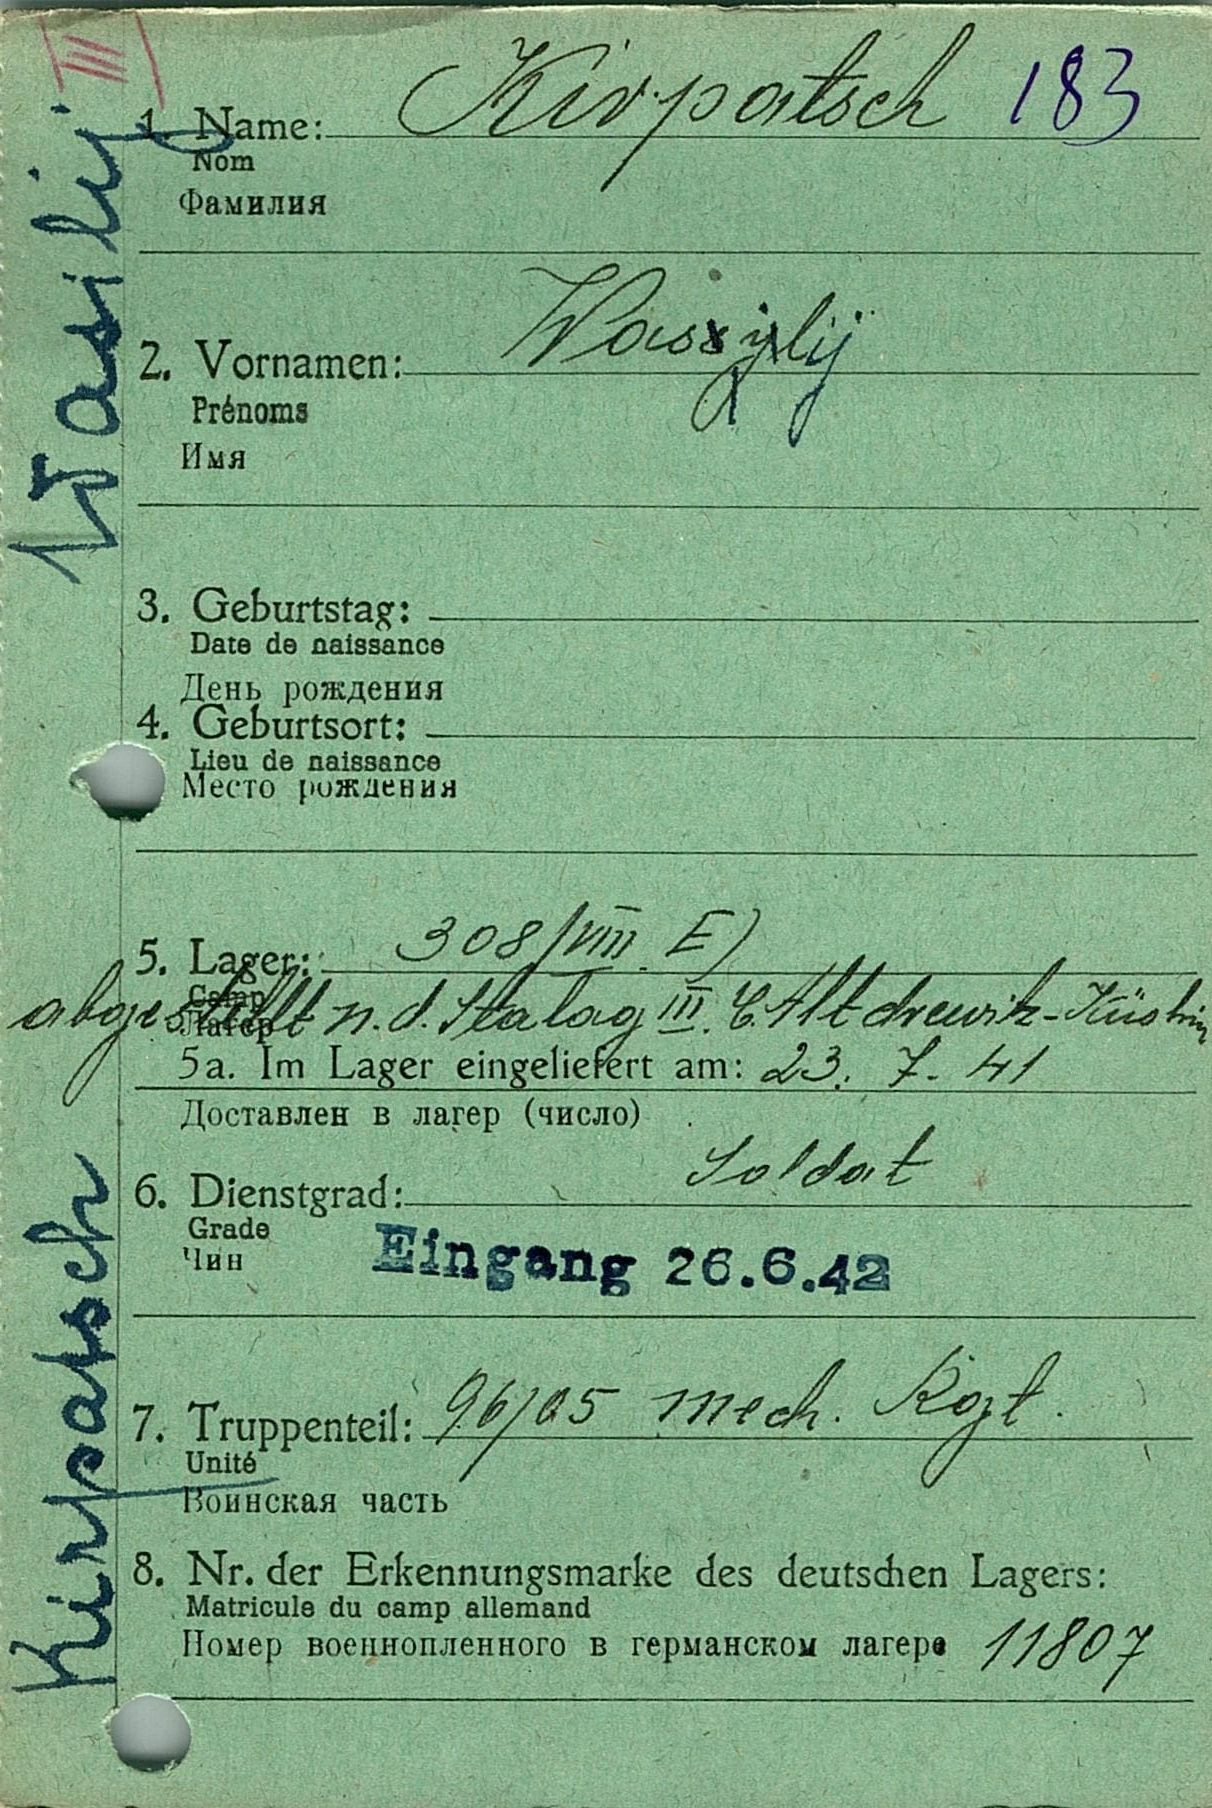 III
1. Name: Kirpatsch 183
Nom
Фамилия
2. Vornamen: Wassylij
Prénoms
Имя
3. Geburtstag:
Date de naissance
День рождения
4. Geburtsort:
Lieu de naissance
Место рождения
5. Lager: 308/VIII E)
Camp
Лагерь
abgestellt n. d. Stalag III. C. Alt drewitz-Küstrin
5a. Im Lager eingeliefert am: 23. 7. 41
Доставлен в лагер (число)
6. Dienstgrad: Soldat
Grade
Чин
Eingang 26.6.42
7. Truppenteil: 96/05 mech. Rgt.
Unité
Воинская часть
8. Nr. der Erkennungsmarke des deutschen Lagers:
Matricule du camp allemand
Номер военнопленного в германском лагере 11807
Kirpatsch Wasilij